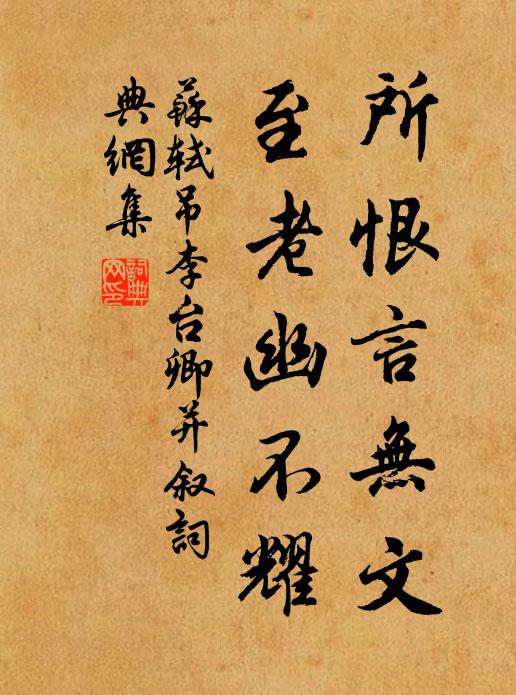 所恨言無文
至老幽不耀
蘇軾吊李台卿并叙詞
典網集
詞典網印